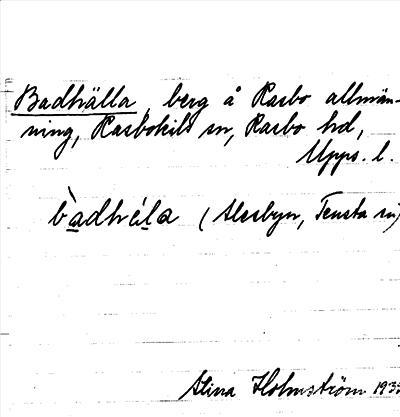 Badhälla, berg å Rasbo allmän-
ning, Rasbokils sn, Rasbo hd,
Upps. l.
bàdhéla (Alesbyn, Tensta sn)
Stina Holmström 193